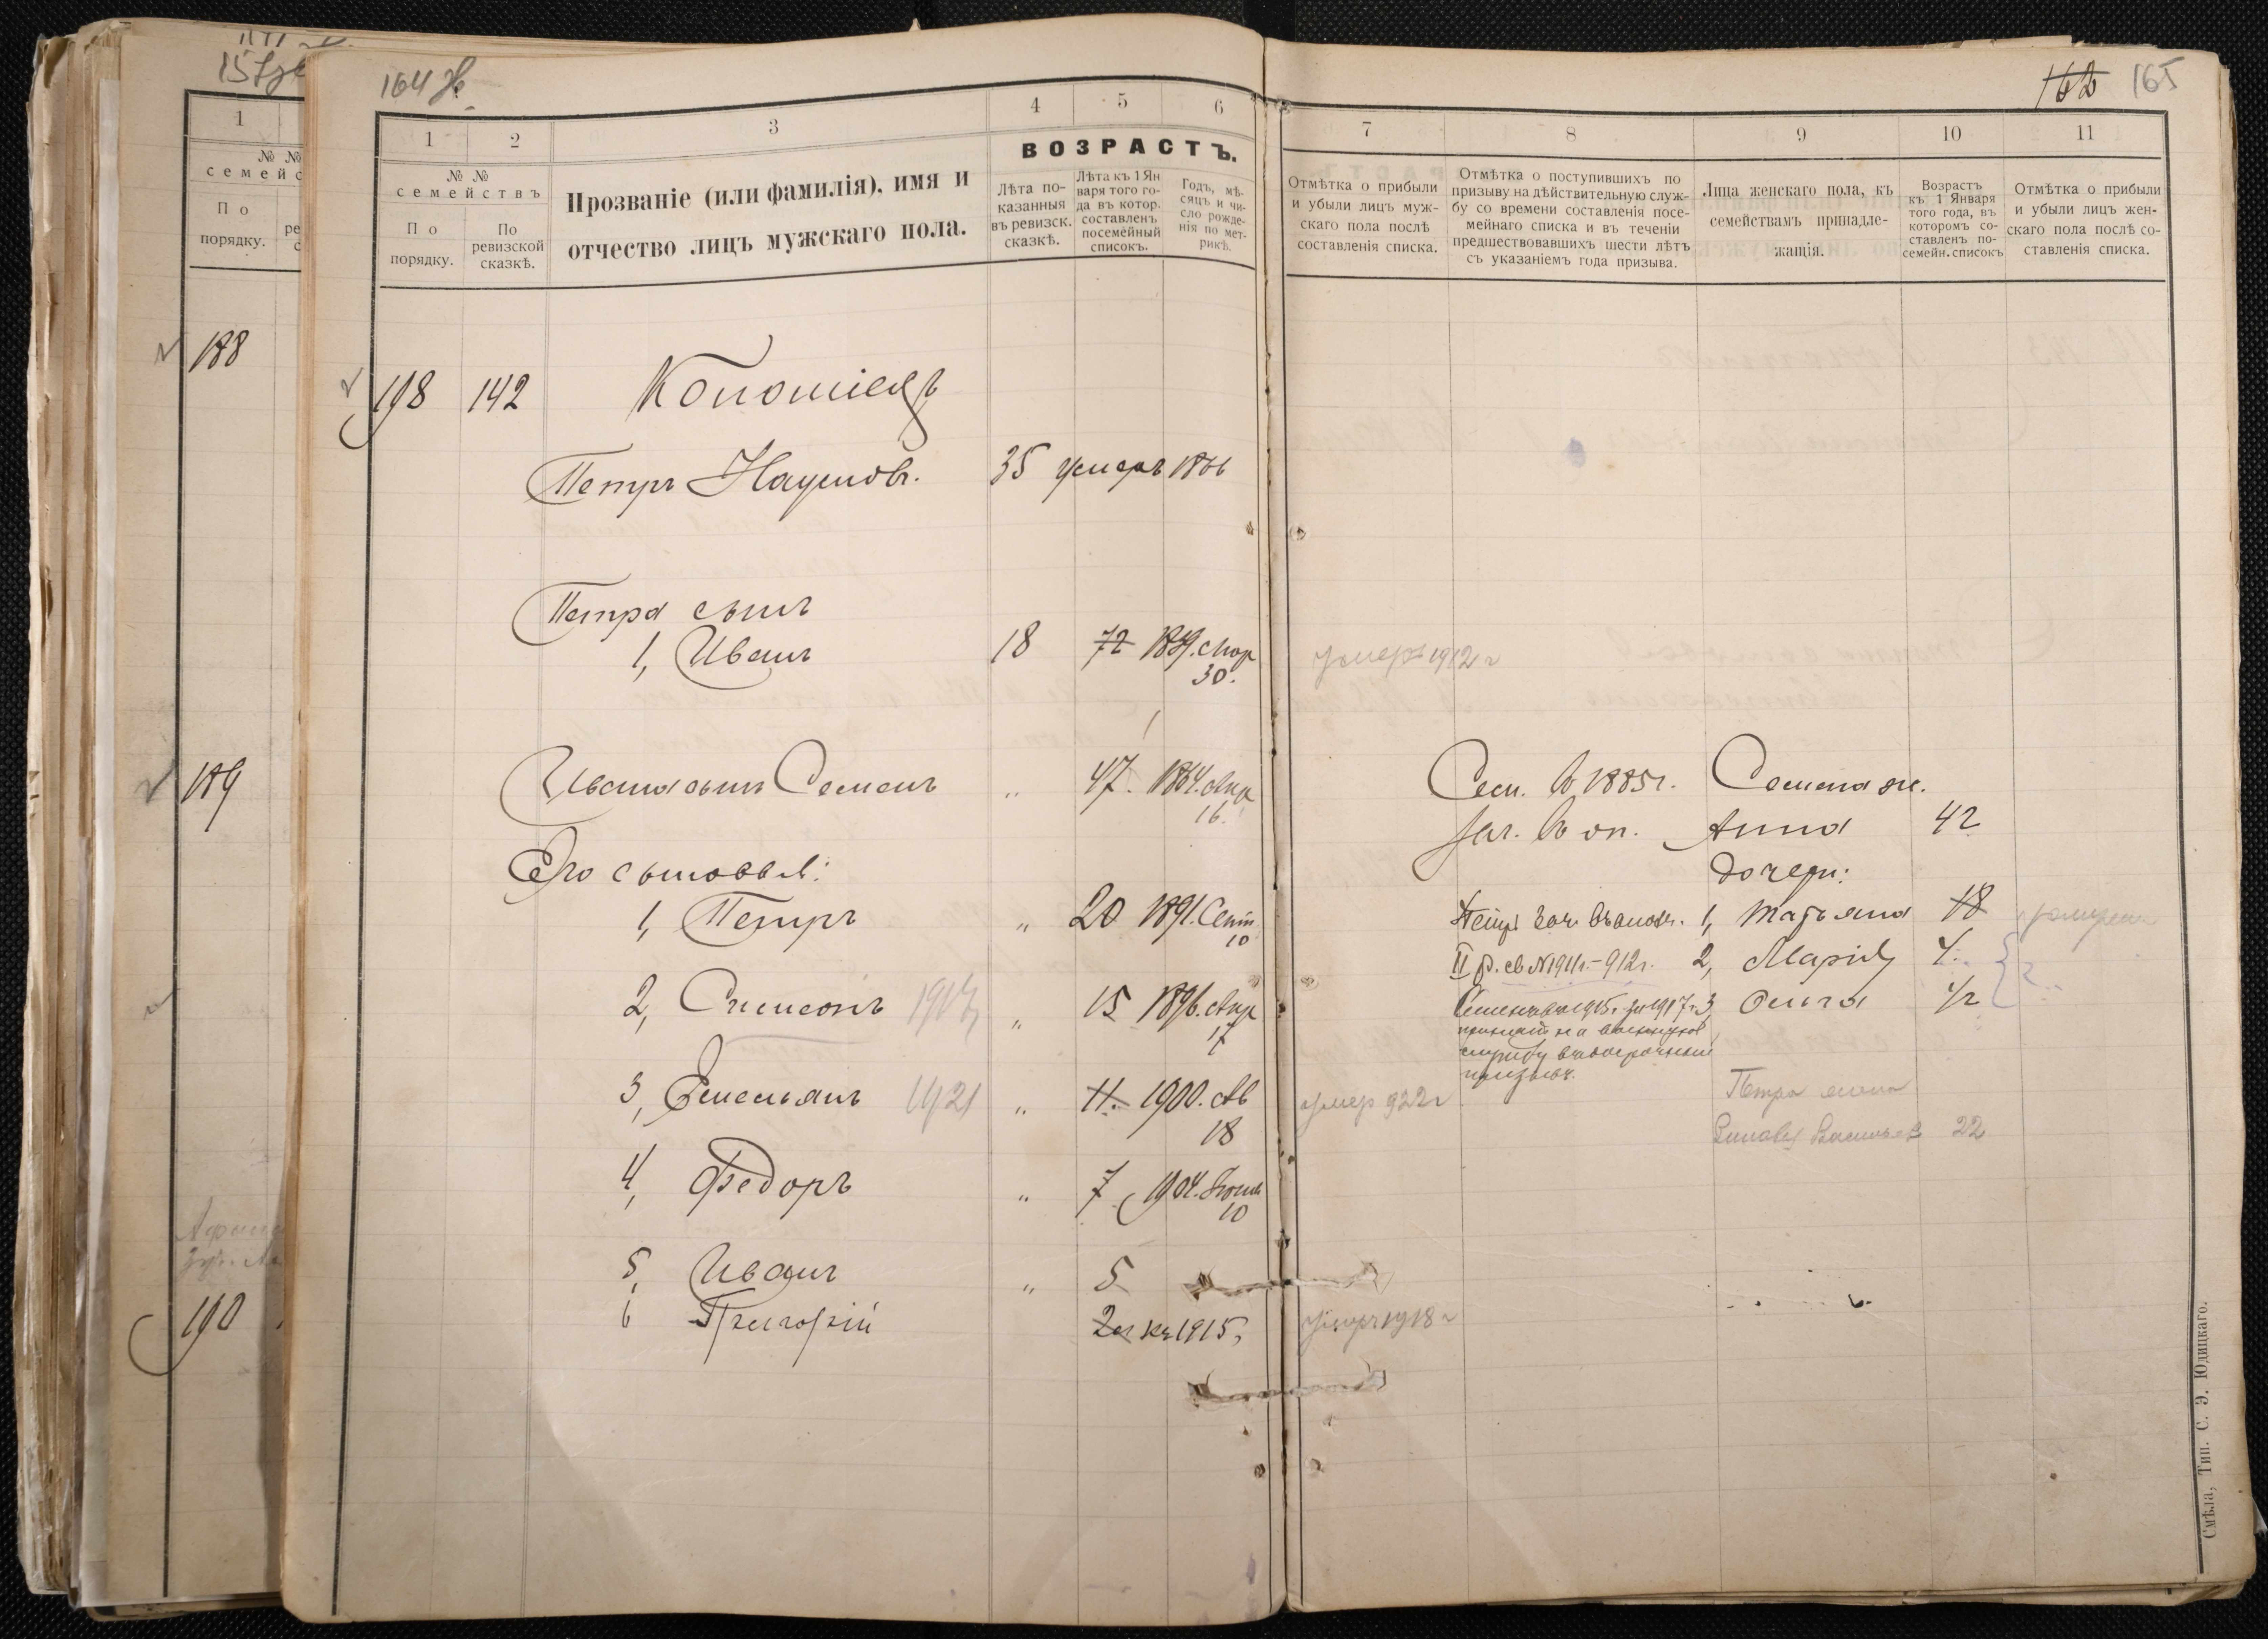 15
164 Ж
1
№ №
семейс
По
порядку.
188
189
190
1
2
3
4
5
6
№ №
семействъ
По
порядку.
По
ревизской
сказкѣ.
Прозваніе (или фамилія), имя и
отчество лицъ мужскаго пола.
ВОЗРАСТЪ.
Лѣта по-
казанныя
въ ревизск.
сказкѣ.
Лѣта къ 1 Ян
варя того го-
да въ котор.
составленъ
посемейный
списокъ.
Годъ, мѣ-
сяцъ и чи-
сло рожде-
нія по мет-
рикѣ.
198 142
Петръ Наумовъ. 35 умеръ 1866
Петра сынъ
1, Иванъ 18 72 30.
Ивана сынъ Семенъ " 47. 1864. Апр
16.
Его сыновья:
1, Петръ " 20 1891. Сент
10
2, Симеонъ 1917 " 15 1896. Апр
17
3, Емельянъ 1921 " 11. 1900. Ав
18
4, Федоръ " 7 1904. Іюня
10
5, Иванъ " 5
6 Григорій 2 л къ 1915,
162 165
7
8
9
10
11
Отмѣтка о прибыли
и убыли лицъ муж-
скаго пола послѣ
составленія списка.
Отмѣтка о поступившихъ по
призыву на дѣйствительную служ-
бу со времени составленія посе-
мейнаго списка и въ теченіи
предшествовавшихъ шести лѣтъ
съ указаніемъ года призыва.
Лица женскаго пола, къ
семействамъ принадле-
жащія.
Возрастъ
къ 1 Января
того года, въ
которомъ со-
ставленъ по-
семейн. списокъ
Отмѣтка о прибыли
и убыли лицъ жен-
скаго пола послѣ со-
ставленія списка.
умеръ 1912 г
Сем. въ 1885 г. Семена ж.
зач. въ оп. Анна 42
дочери:
Петръ зач. въ ополч. 1, Татьяна 18
II р. св № 1911 г. - 912 г. 2, Марія 4
3, Ольга 1/2
на военную
службу въ досрочный
призывъ.
умер 922 г
Петра жена
22
умеръ 1918 г
Смѣла, Тип. С. Э. Юдицкаго.